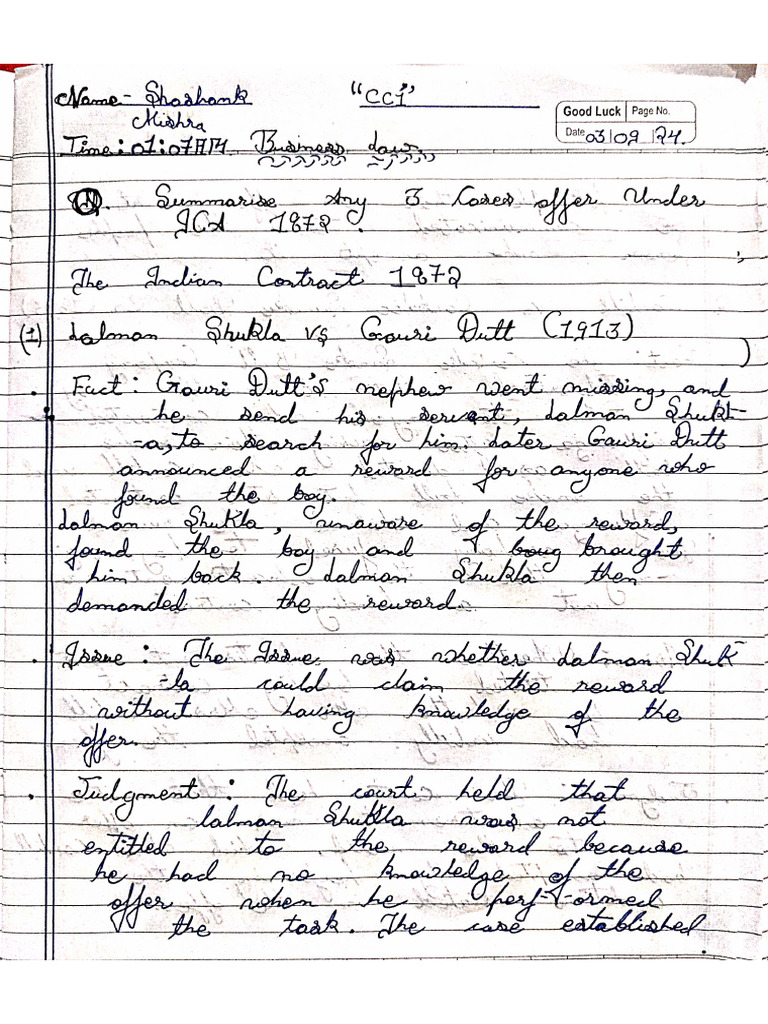 Name - Shashank "CC1"
Mishra
Good Luck Page No.
Date 03/09/24.
Time: 01:07AM Business Law.
Q. Summarise Any 3 Cases offer Under
ICA 1872.
The Indian Contract 1872
(1) Lalman Shukla vs Gauri Dutt (1913)
. Fact: Gauri Dutt's nephew went missing, and
he send his servent, Lalman Shukl-
-a, to search for him. Later Gauri Dutt
announced a reward for anyone who
found the boy.
Lalman Shukla, unaware of the reward,
found the boy and brought
him back. Lalman Shukla then
demanded the reward.
. Issue: The Issue was whether Lalman Shuk-
-la could claim the reward
without having knowledge of the
offer.
. Judgment: The court held that
lalman Shukla was not
entitled to the reward because
he had no knowledge of the
offer when he perf-ormed
the task. The case established